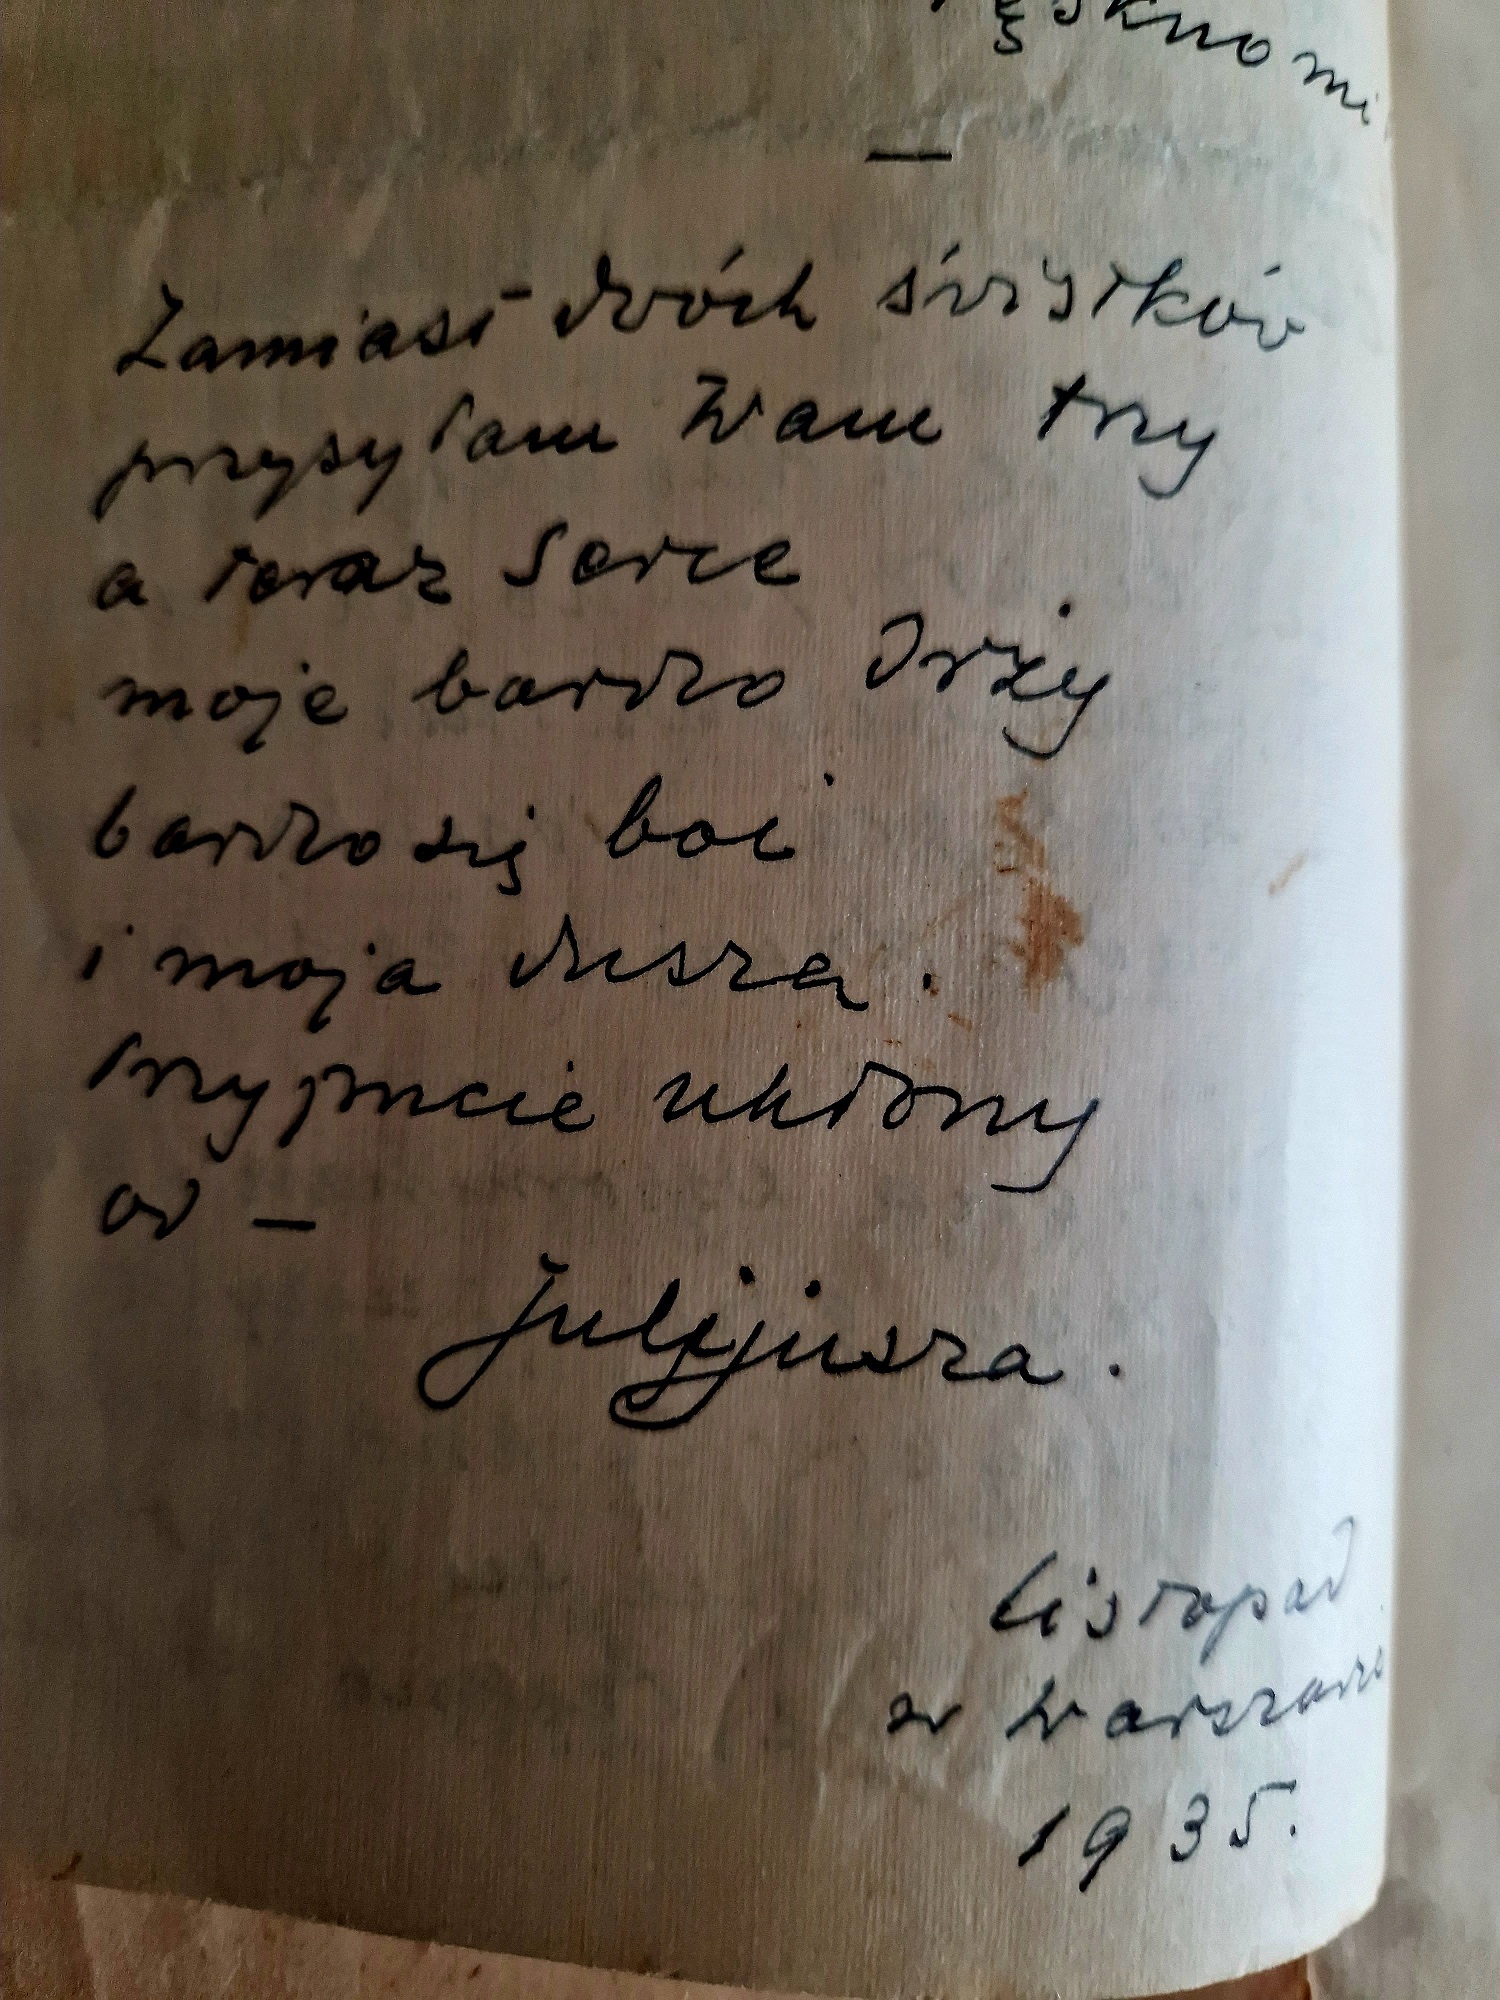 tęskno mi
—
Zamiast dwóch świstków
przysyłam Wam trzy
a teraz serce
moje bardzo drży
bardzo się boi
i moja dusza.
Przyjmcie ukłony
od —
Juljjusza.
Listopad
w Warszawie
1935.